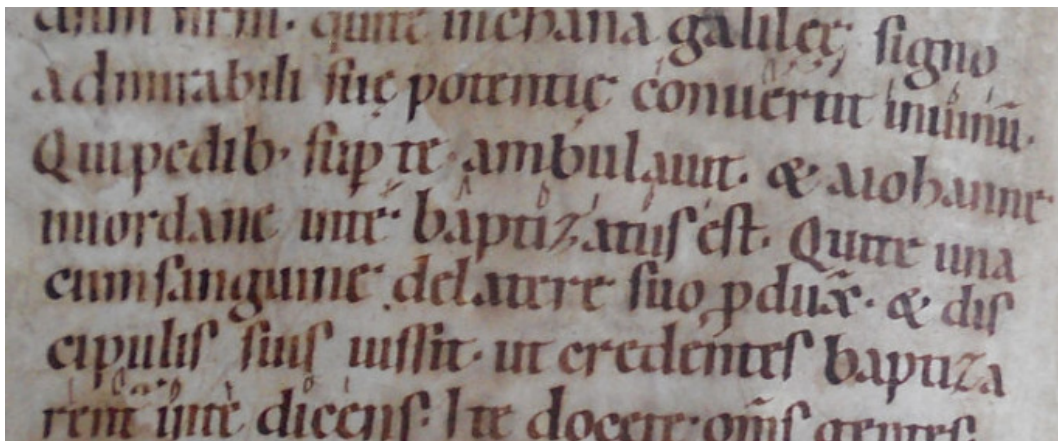 qui te in chana galileę, signo
admirabili suę potentię conuertit in uinū.
Qui pedib. sup te ambulauit. & a iohanne
in iordane in te baptizatus est. Qui te una
cum sanguine de latere suo ꝓduẍ. & dis
cipulis suis iussit. ut credentes baptiza
rent in te dicens. Ite docete om̄s gentes